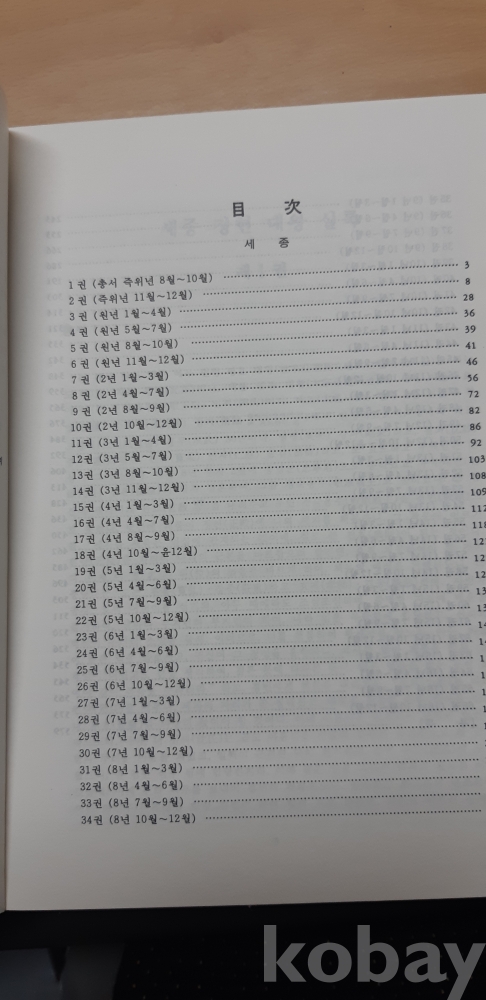 目 次
세 종
1권 (총서 즉위년 8월～10월) 3
2권 (즉위년 11월～12월) 8
3권 (원년 1월～4월) 28
4권 (원년 5월～7월) 36
5권 (원년 8월～10월) 39
6권 (원년 11월～12월) 41
7권 (2년 1월～3월) 46
8권 (2년 4월～7월) 56
9권 (2년 8월～9월) 72
10권 (2년 10월～12월) 82
11권 (3년 1월～4월) 86
12권 (3년 5월～7월) 92
13권 (3년 8월～10월) 103
14권 (3년 11월～12월) 108
15권 (4년 1월～3월) 109
16권 (4년 4월～7월) 112
17권 (4년 8월～9월) 118
18권 (4년 10월～윤12월) 12
19권 (5년 1월～3월) 12
20권 (5년 4월～6월) 12
21권 (5년 7월～9월) 13
22권 (5년 10월～12월) 13
23권 (6년 1월～3월) 14
24권 (6년 4월～6월) 14
25권 (6년 7월～9월) 1
26권 (6년 10월～12월) 1
27권 (7년 1월～3월) 1
28권 (7년 4월～6월) 1
29권 (7년 7월～9월) 1
30권 (7년 10월～12월)
31권 (8년 1월～3월)
32권 (8년 4월～6월)
33권 (8년 7월～9월)
34권 (8년 10월～12월)
kobay